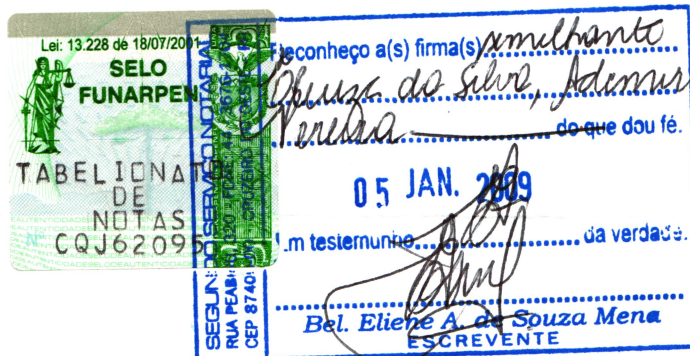 Lei: 13.228 de 18/07/2001
SELO
FUNARPEN
TABELIONATO
DE
NOTAS
CQJ62095
SERVIÇO NOTARIAL
RUA PEAB
CEP 8740
Reconheço a(s) firma(s) semelhante
da Silva, Ademir
Pereira do que dou fé.
05 JAN. 2009
Em testemunho da verdade.
Bel. Eliene A. de Souza Mena
ESCREVENTE